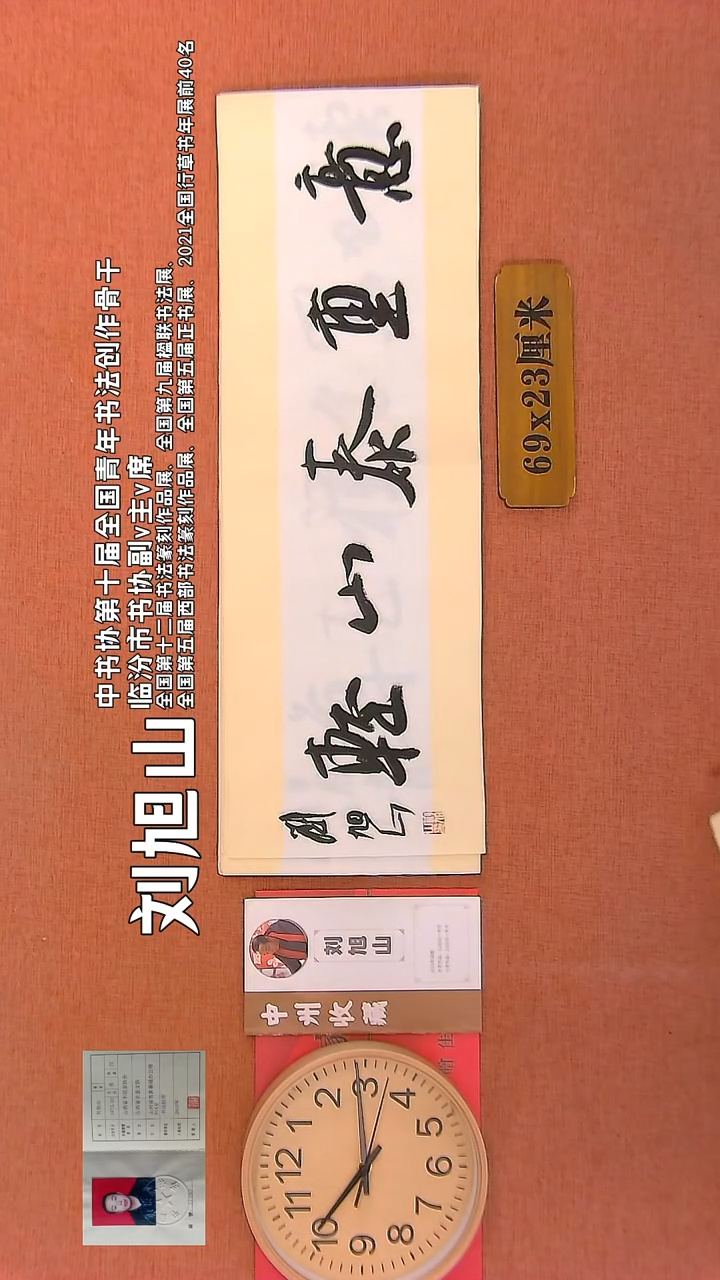 中书协第十届全国青年书法创作骨干
临汾市书协副v主v席
全国第十二届书法篆刻作品展、全国第九届楹联书法展、
全国第五届西部书法篆刻作品展、全国第五届正书展、2021全国行草书年展前40名
刘旭山
意重泰山輕
劉旭山
69x23厘米
刘旭山
中州收藏
12
1
2
3
4
5
6
7
8
9
10
11